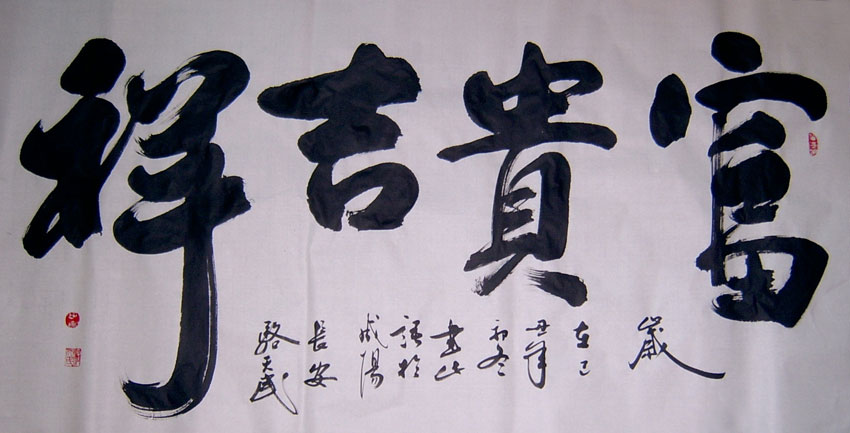 富貴吉祥
歲
在己
丑年
初冬
書此
語於
咸陽
長安
駱天民